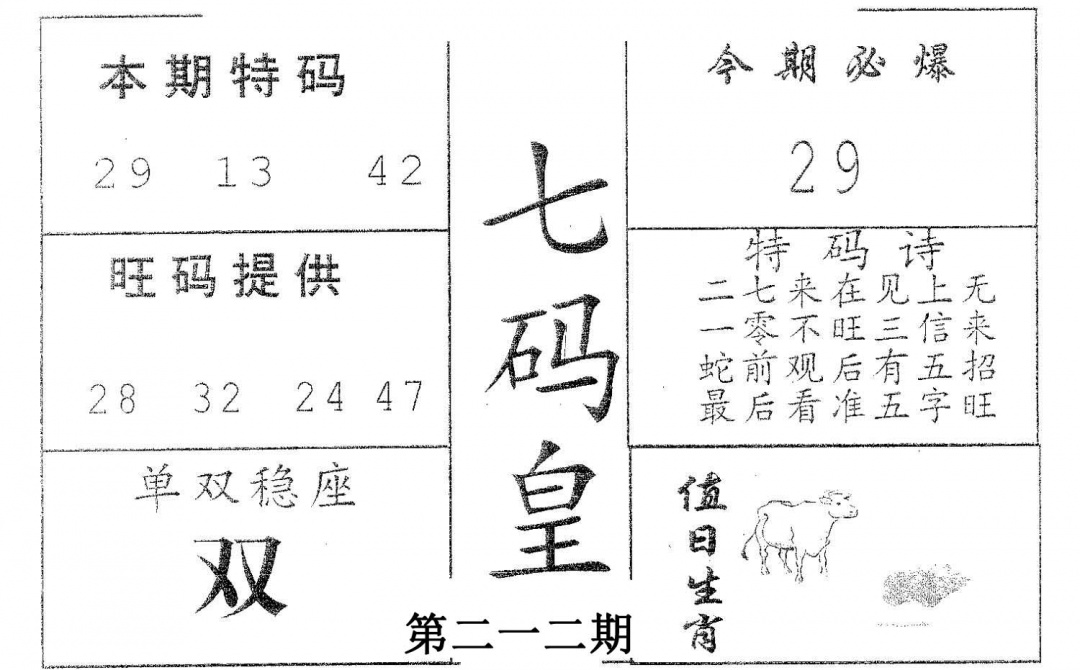 本期特码
29 13 42
旺码提供
28 32 24 47
单双稳座
双
七码皇
第二一二期
今期必爆
29
特码诗
二七来在见上无
一零不旺三信来
蛇前观后有五招
最后看准五字旺
值日生肖